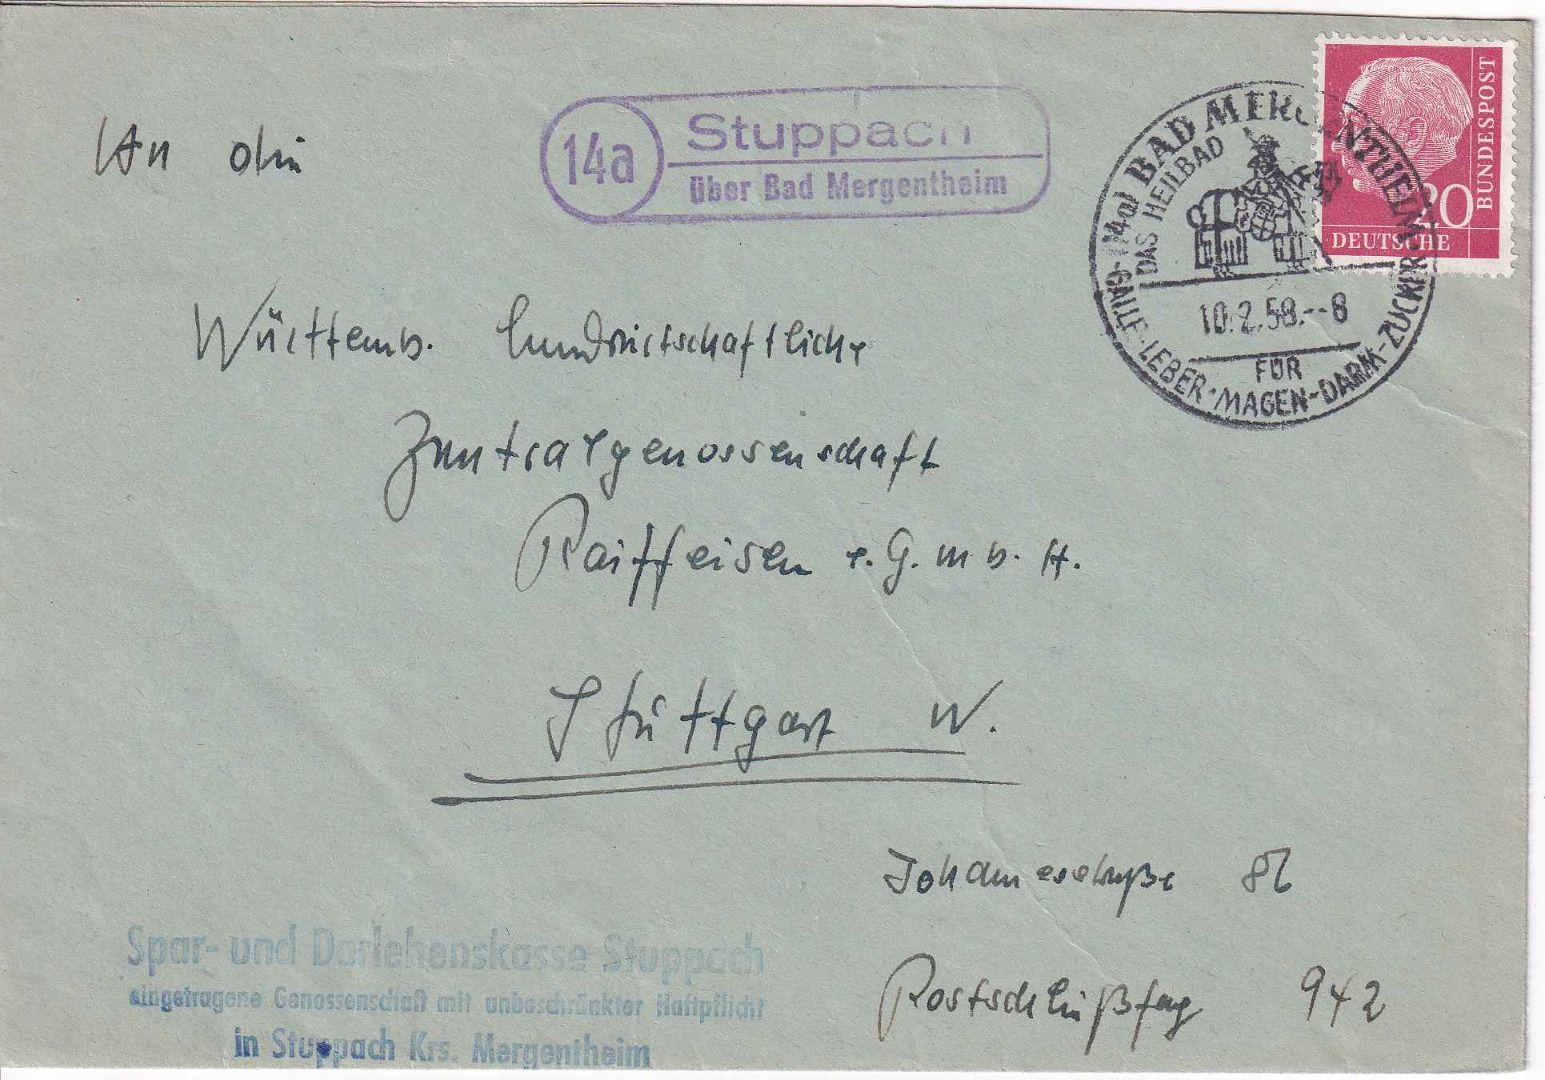 An die
14a
Stuppach
über Bad Mergentheim
(14a) BAD MERGENTHEIM
DAS HEILBAD
10.2.58.--8
FÜR
GALLE-LEBER-MAGEN-DARM-ZUCKER
20
DEUTSCHE
BUNDESPOST
Württemb. Landwirtschaftliche
Zentralgenossenschaft
Raiffeisen e.G.m.b.H.
Stuttgart W.
Johannesstraße 86
Postschließfag 942
Spar- und Darlehenskasse Stuppach
eingetragene Genossenschaft mit unbeschränkter Haftpflicht
in Stuppach Krs. Mergentheim